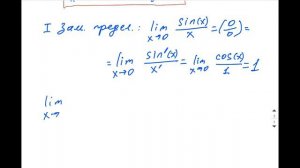 I Зам. предел.: lim x→0 sin(x)/x = (0/0) =
= lim x→0 sin'(x)/x' = lim x→0 cos(x)/1 = 1
lim x→